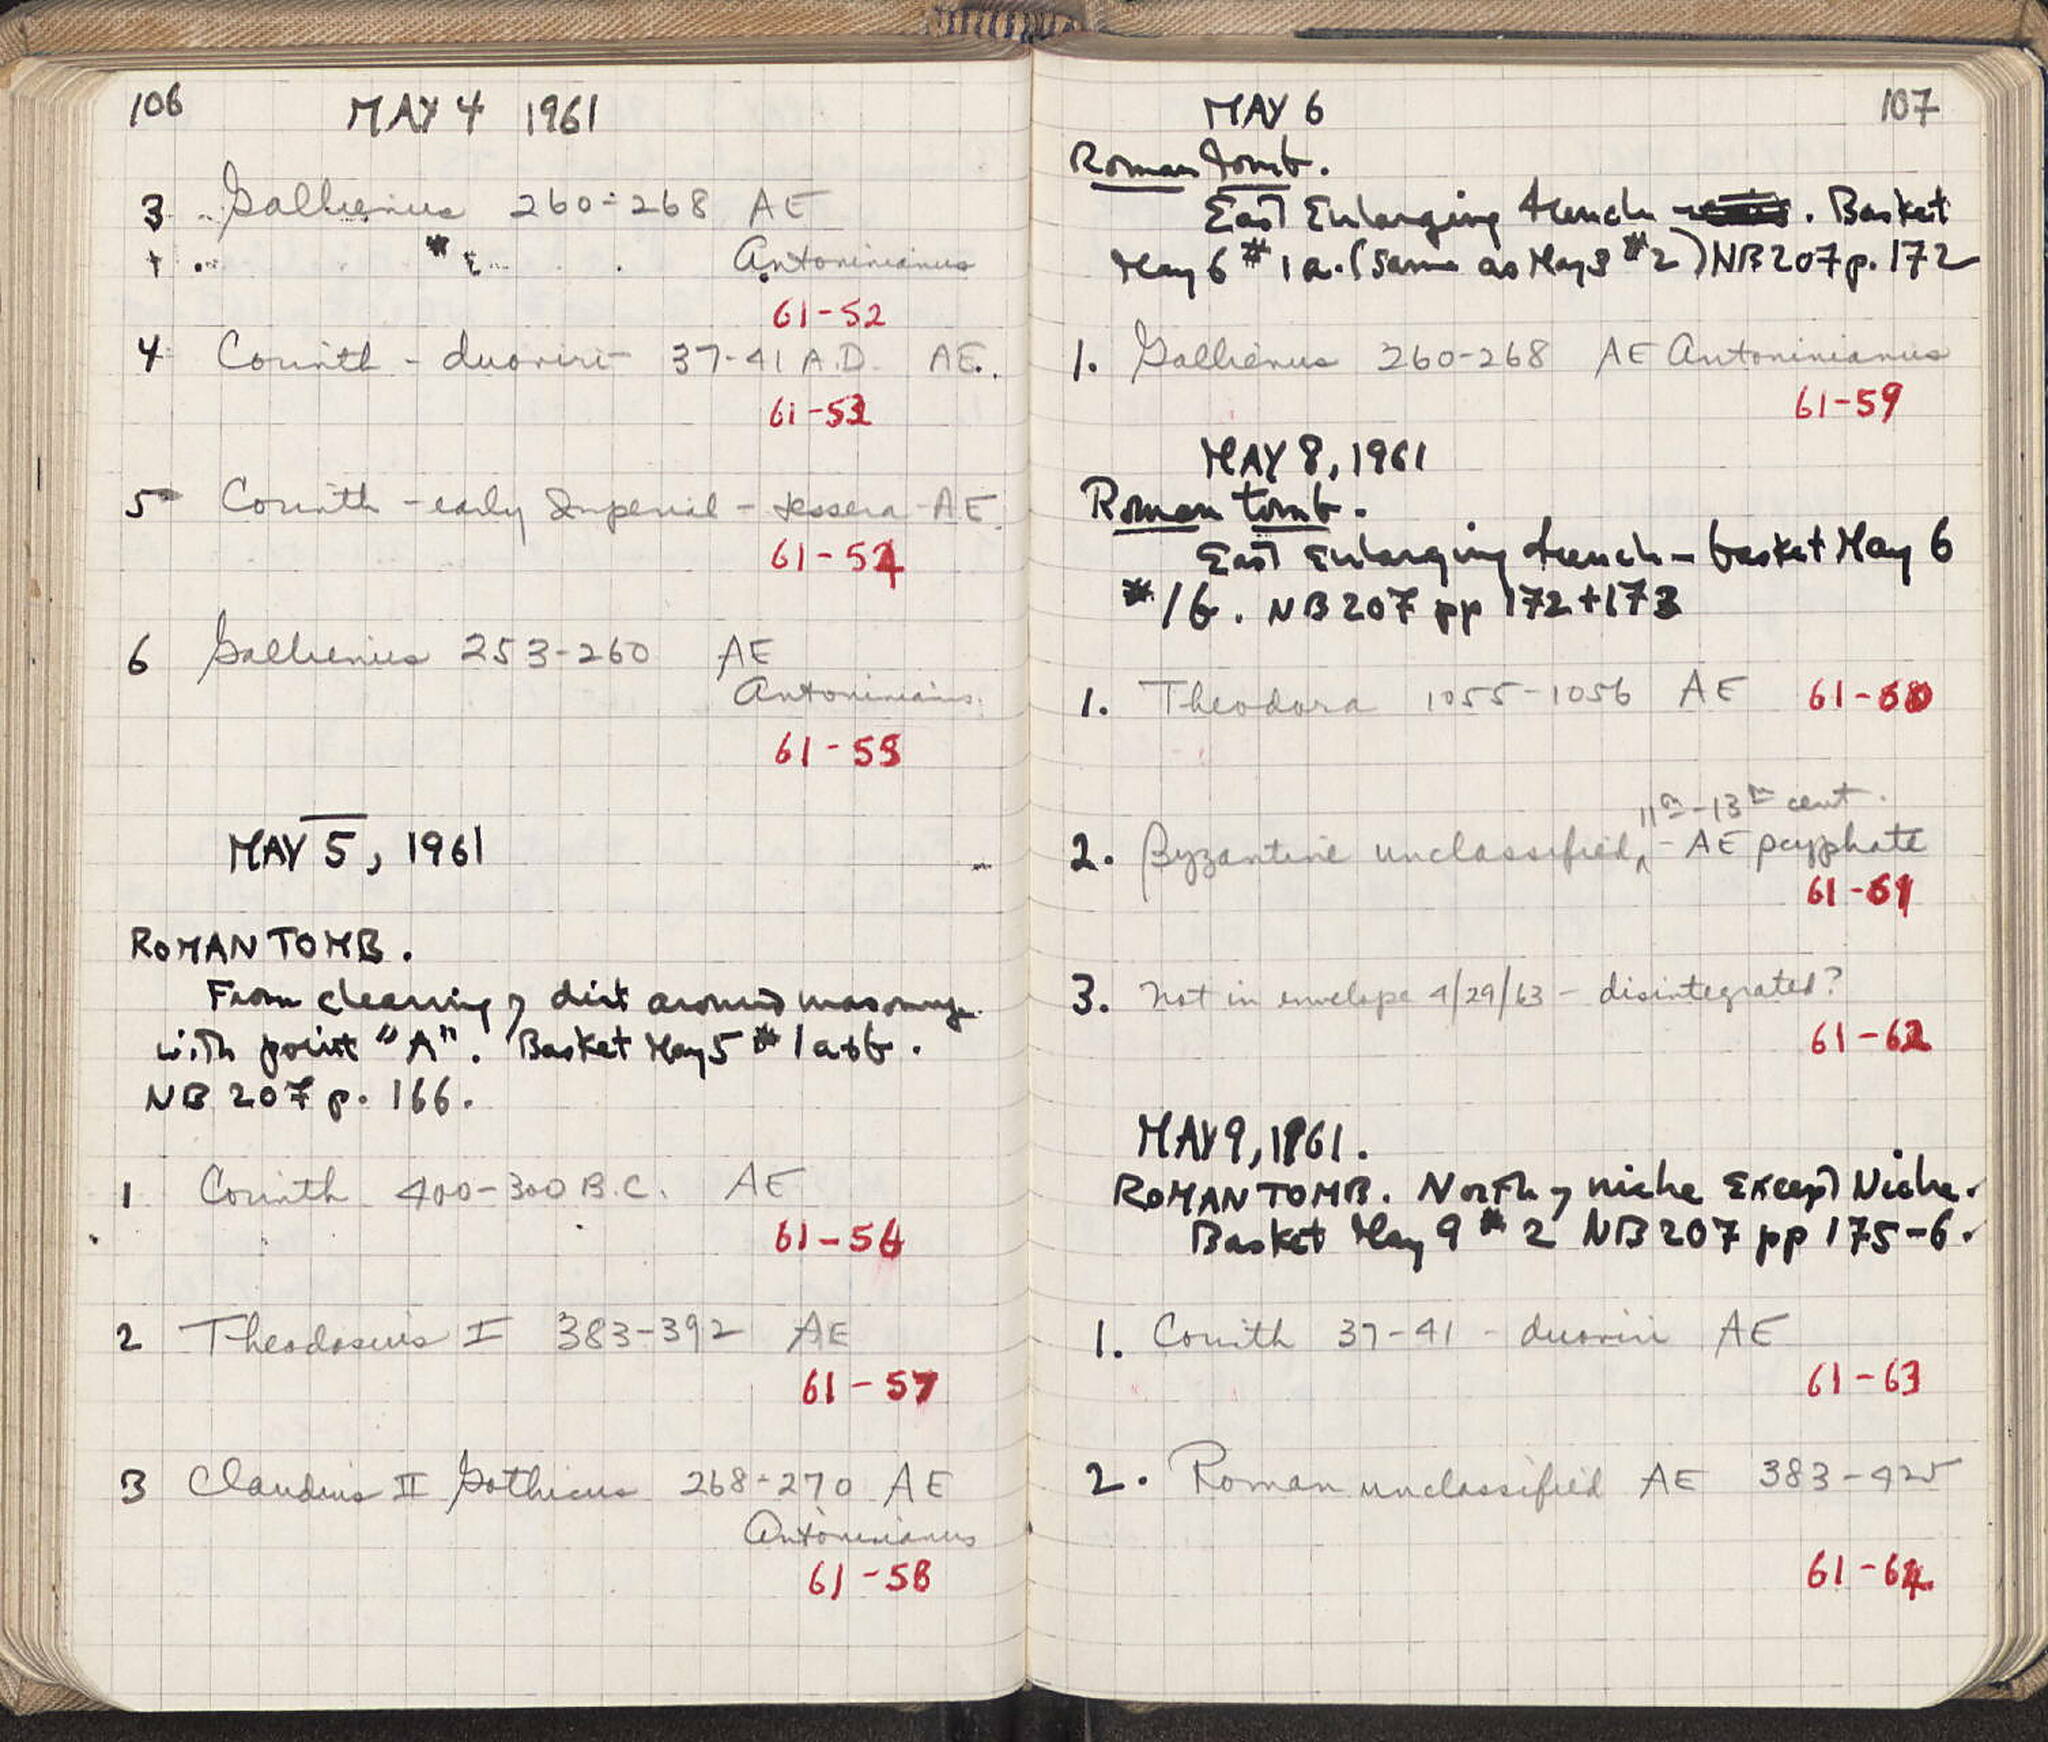 106
MAY 4 1961
3 Gallienus 260-268 AE
Antoninianus
61-52
4 Corinth - duoviri - 37-41 A.D. AE.
61-53
5 Corinth - early Imperial - tessera - AE.
61-54
6 Gallienus 253-260 AE
Antoninianus.
61-55
MAY 5, 1961
ROMAN TOMB.
From cleaning of dirt around masonry
with point "A". Basket May 5 # 1a+b.
NB 207 p. 166.
1 Corinth 400-300 B.C. AE
61-56
2 Theodosius I 383-392 AE
61-57
3 Claudius II Gothicus 268-270 AE
Antoninianus
61-58
MAY 6
107
Roman Tomb.
East Enlarging trench. Basket
May 6 # 1a. (same as May 3 # 2) NB 207 p. 172
1. Gallienus 260-268 AE Antoninianus
61-59
MAY 8, 1961
Roman tomb.
East Enlarging trench - basket May 6
# 1b. NB 207 pp 172+173
1. Theodora 1055-1056 AE 61-60
11th-13th cent.
2. Byzantine unclassified, - AE scyphate
61-61
3. Not in envelope 4/29/63 - disintegrated?
61-62
MAY 9, 1961.
ROMAN TOMB. North of niche Except Niche.
Basket May 9 # 2 NB 207 pp 175-6.
1. Corinth 37-41 - duoviri AE
61-63
2. Roman unclassified AE 383-425
61-64